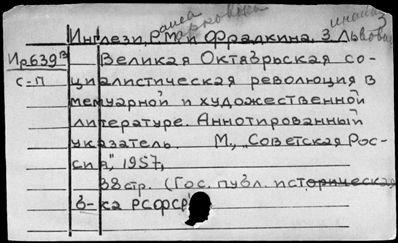 Инглези, Р.М. и Фрадкина, З. Львовна
Ир639в
Великая Октябрьская со-
с-п
циалистическая революция в
мемуарной и художественной
литературе. Аннотированный
указатель. М., "Советская Рос-
сия", 1957,
38 стр. (Гос. публ. историческая
б-ка РСФСР)